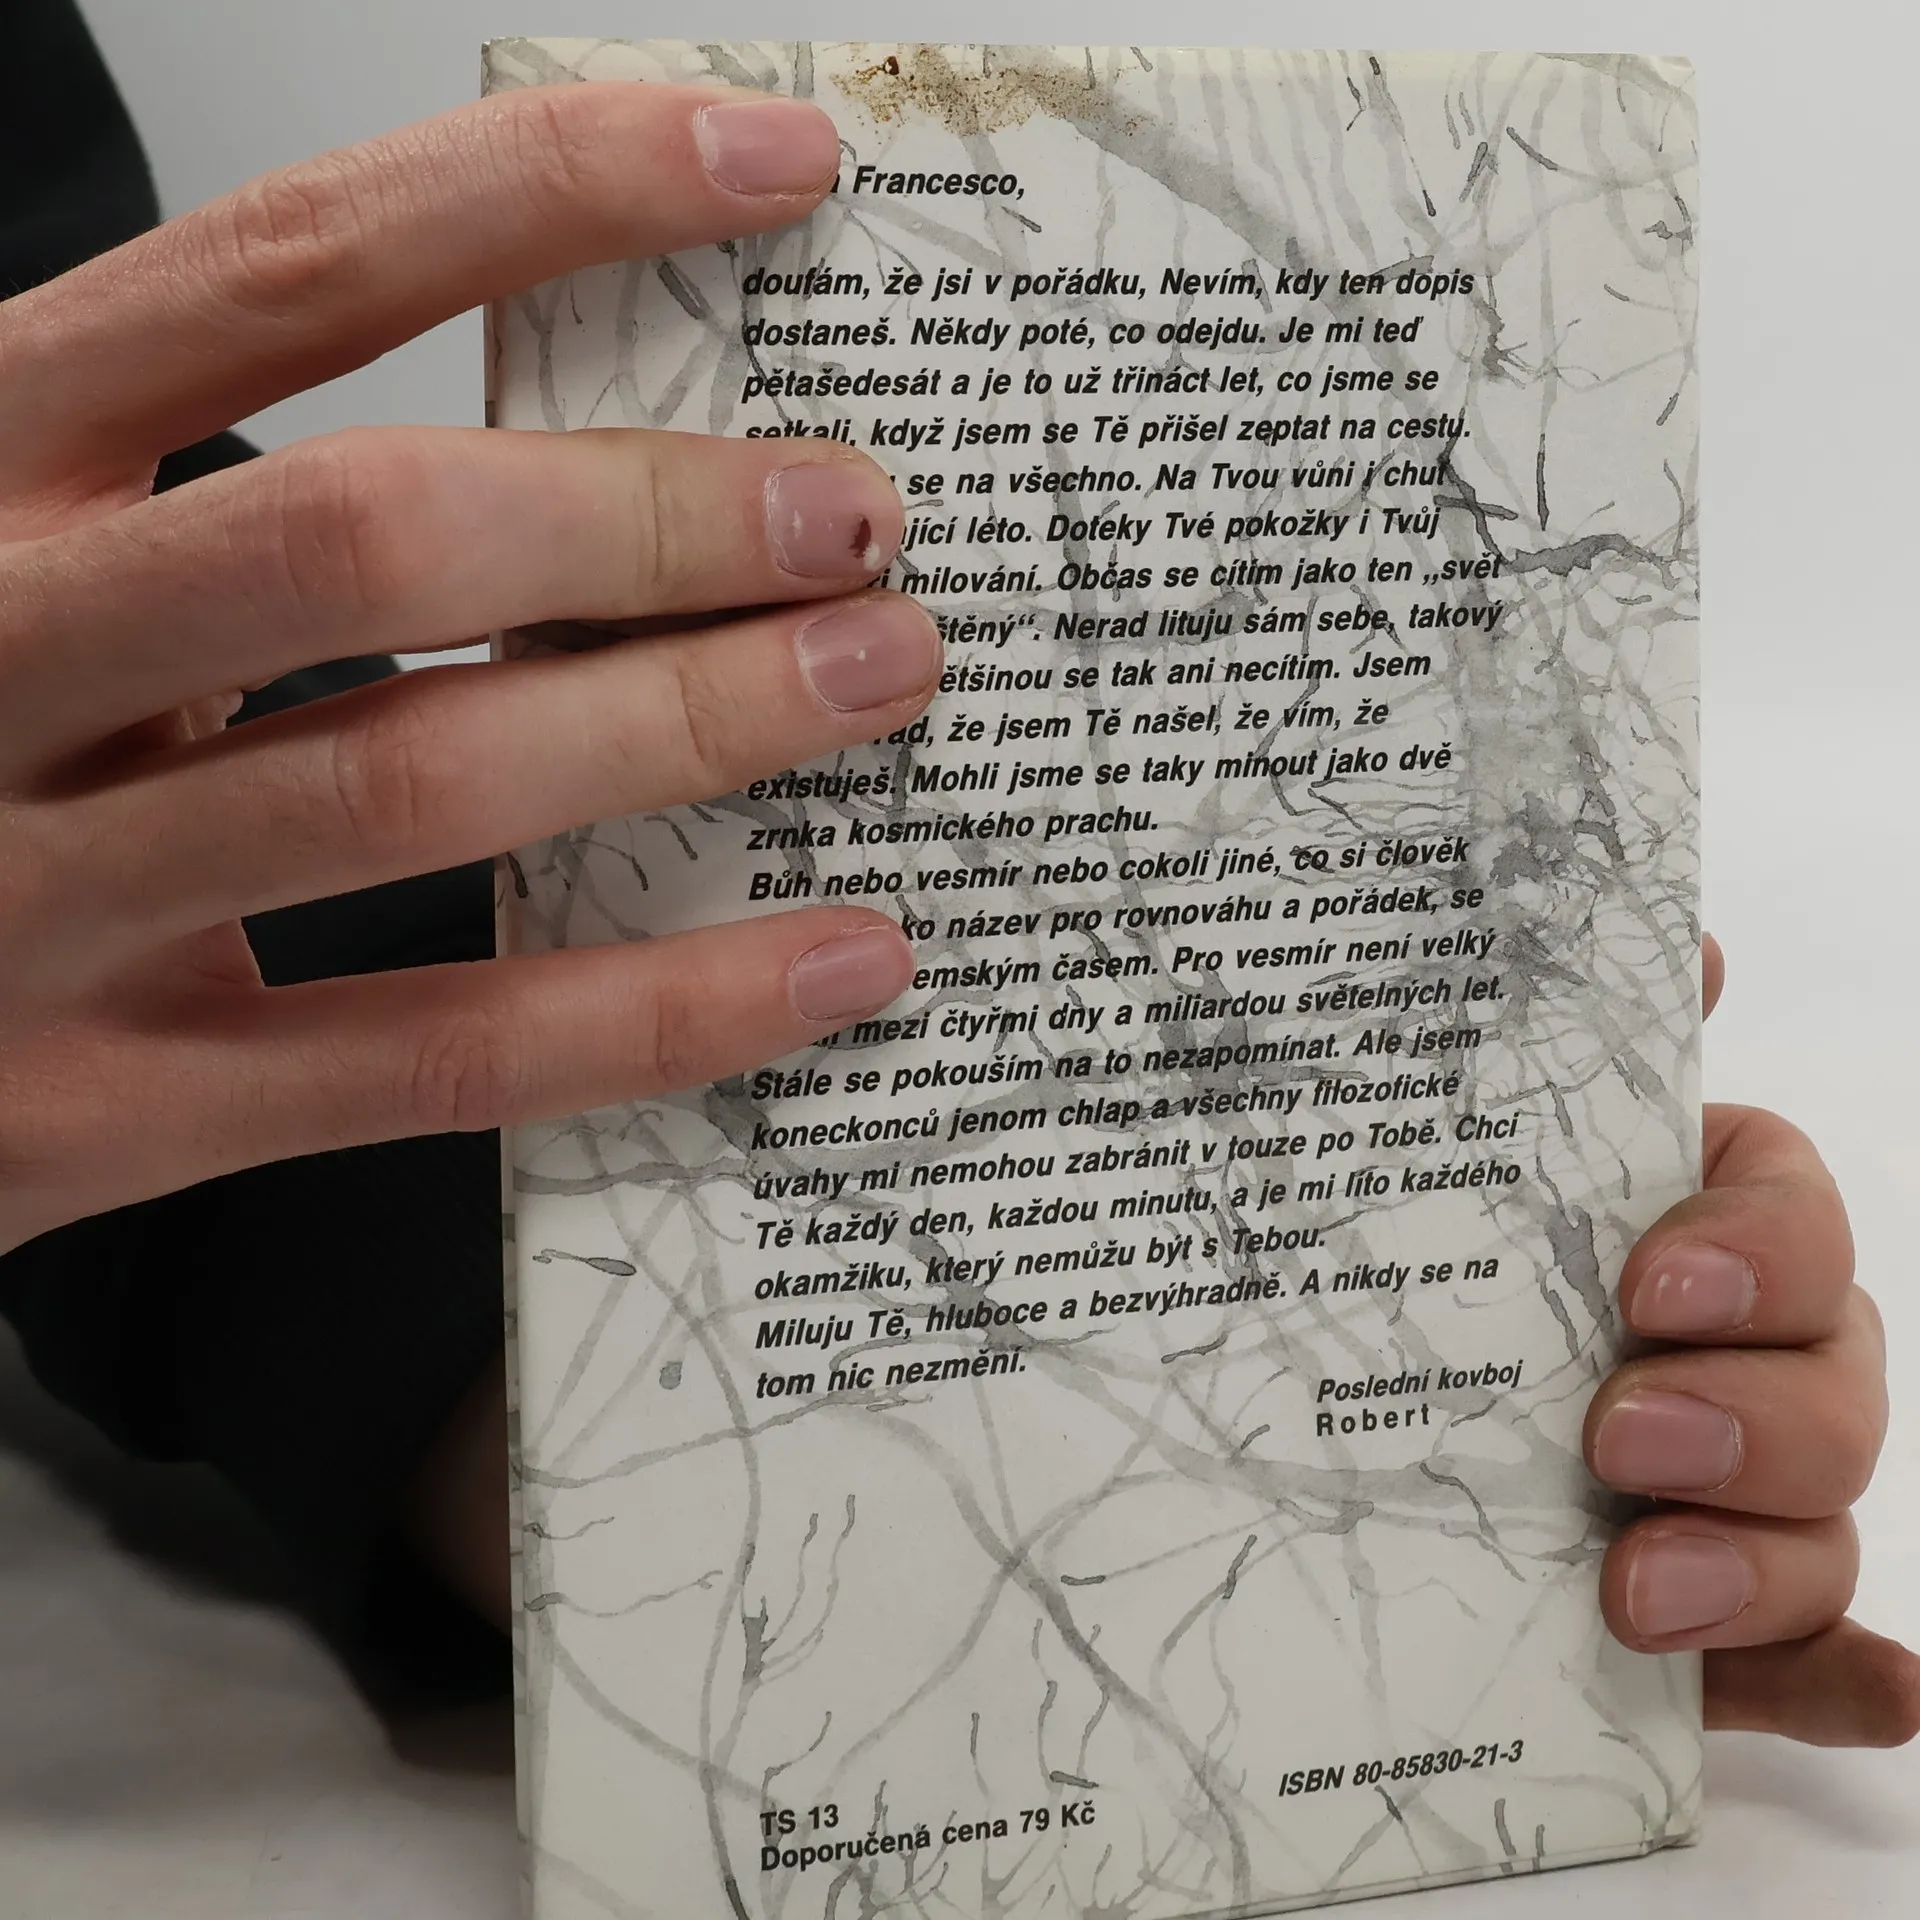 Francesco,
doufám, že jsi v pořádku, Nevím, kdy ten dopis
dostaneš. Někdy poté, co odejdu. Je mi teď
pětašedesát a je to už třináct let, co jsme se
setkali, když jsem se Tě přišel zeptat na cestu.
se na všechno. Na Tvou vůni i chuť
léto. Doteky Tvé pokožky i Tvůj
milování. Občas se cítím jako ten „svět
Nerad lituju sám sebe, takový
se tak ani necítím. Jsem
že jsem Tě našel, že vím, že
existuješ. Mohli jsme se taky minout jako dvě
zrnka kosmického prachu.
Bůh nebo vesmír nebo cokoli jiné, co si člověk
název pro rovnováhu a pořádek, se
časem. Pro vesmír není velký
mezi čtyřmi dny a miliardou světelných let.
Stále se pokouším na to nezapomínat. Ale jsem
koneckonců jenom chlap a všechny filozofické
úvahy mi nemohou zabránit v touze po Tobě. Chci
Tě každý den, každou minutu, a je mi líto každého
okamžiku, který nemůžu být s Tebou.
Miluju Tě, hluboce a bezvýhradně. A nikdy se na
tom nic nezmění.
Poslední kovboj
Robert
ISBN 80-85830-21-3
TS 13
Doporučená cena 79 Kč